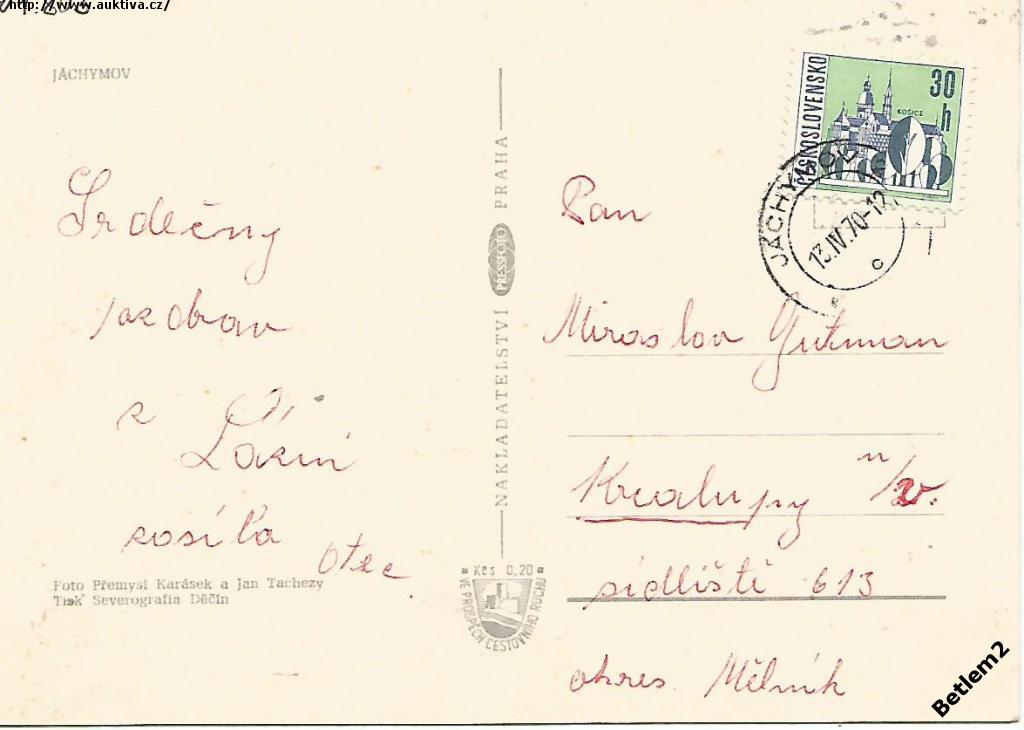 http://www.auktiva.cz/
JÁCHYMOV
Srdečný
pozdrav
z
Lázní
zasílá
otec
Foto Přemysl Karásek a Jan Tachezy
Tisk Severografia Děčín
NAKLADATELSTVÍ PRESSFOTO PRAHA
Kčs 0,20
VE PROSPĚCH CESTOVNÍHO RUCHU
ČESKOSLOVENSKO
30 h
KOŠICE
JÁCHYMOV
13.IV.70-12
c
Pan
Miroslav Gutman
Kralupy n/v.
sídliště 613
okres. Mělník
Betlem2